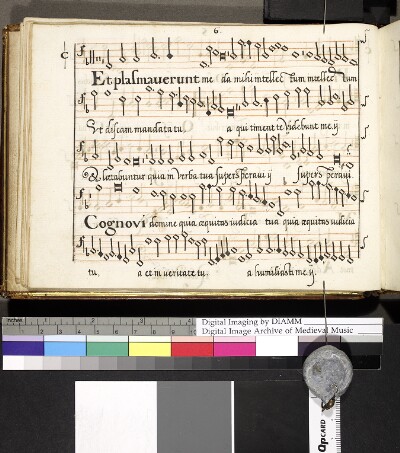 6.
C
Et plasmauerunt me da mihi intellec tum intellec tum
Vt discam mandata tu a qui timent te videbunt me .ij
& letabuntur quia in verba tua supersperaui ij supersperaui.
Cognovi domine quia æquitas iudicia tua quia æquitas iudicia
tu. a et in veritate tu. a humiliasti me .ij.
Digital Imaging by DIAMM
Digital Image Archive of Medieval Music
QPCARD